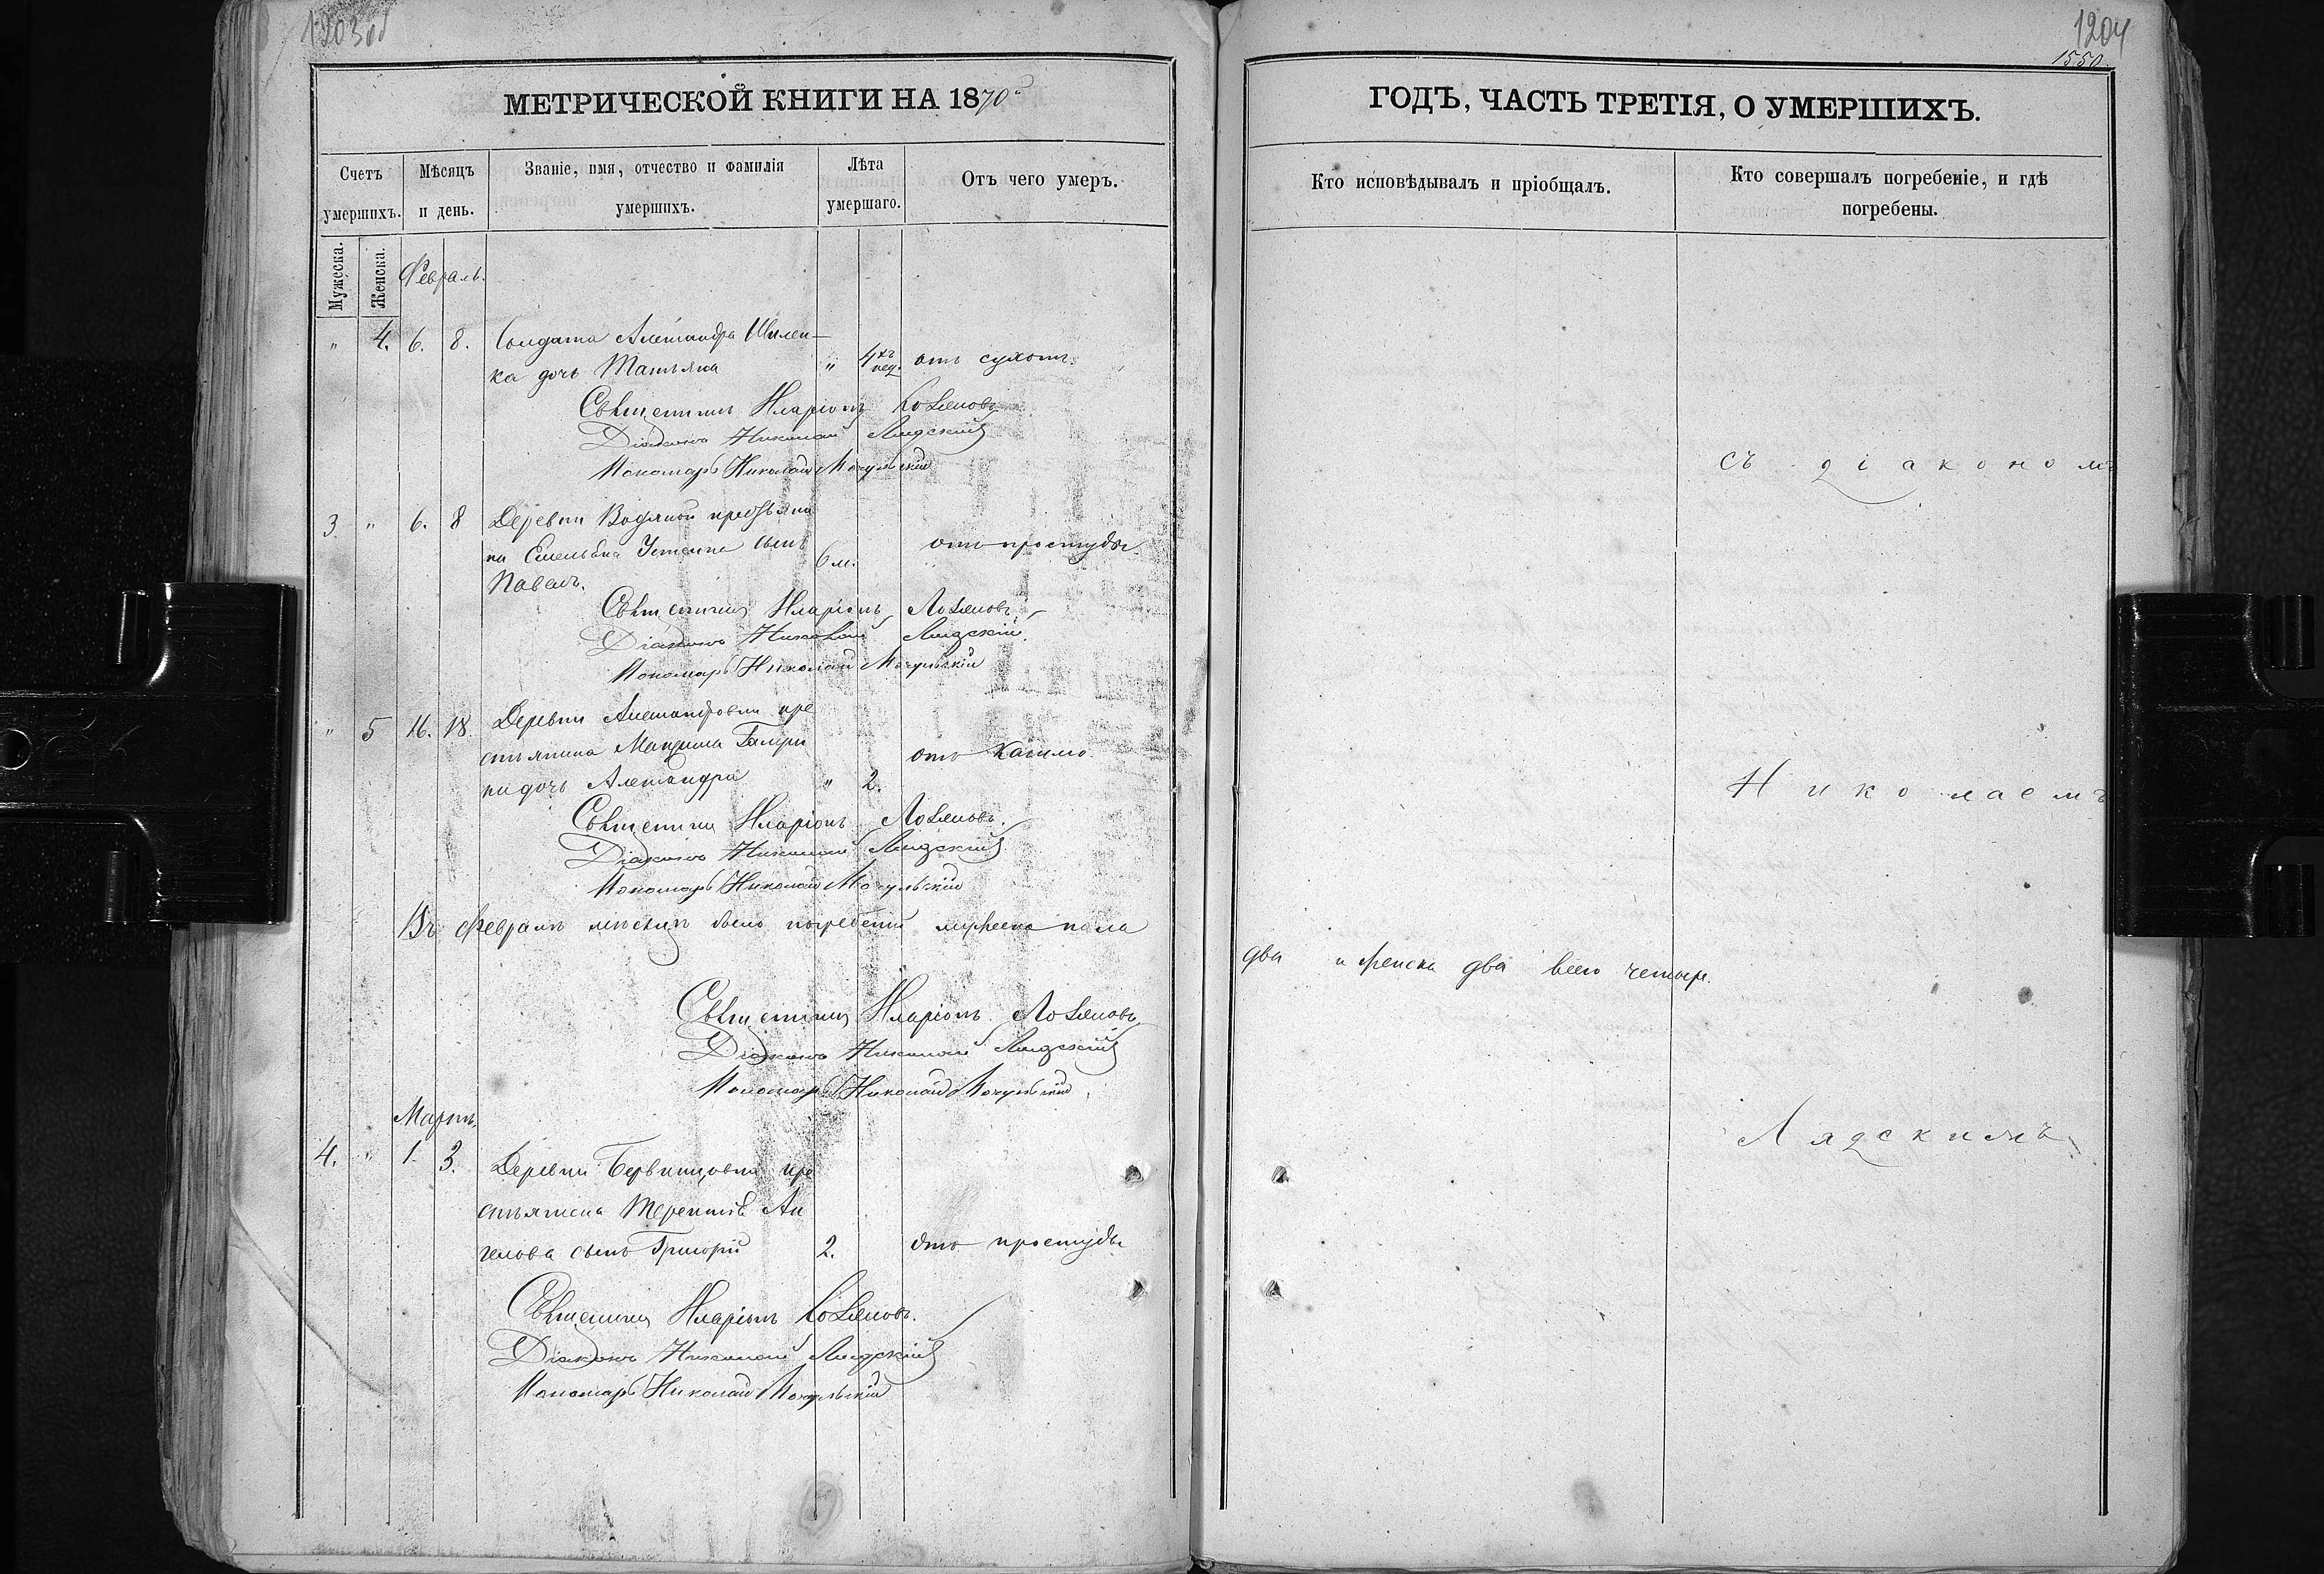 1203об
1204
1550.
МЕТРИЧЕСКОЙ КНИГИ НА 1870й
ГОДЪ, ЧАСТЬ ТРЕТІЯ, О УМЕРШИХЪ.
Счетъ умершихъ.
Мѣсяцъ и день.
Званіе, имя, отчество и фамилія умершихъ.
Лѣта умершаго.
Отъ чего умеръ.
Кто исповѣдывалъ и пріобщалъ.
Кто совершалъ погребеніе, и гдѣ погребены.
Мужеска.
Женска.
Февраль.
" 4. 6. 8. Солдата Александра Шилен-
ка дочь Татьяна " 4хъ нед. отъ сухотъ.
Священникъ Иларіонъ
Діаконъ Николай Лядскій
Пономарь Николай Мочульскій
съ діакономъ
3. " 6. 8 Деревни Водяной крестьяни
на Емельяна Устенка сынъ 6 м. отъ простуды
Павелъ.
Священникъ Иларіонъ
Діаконъ Николай Лядскій.
Пономарь Николай Мочульскій
" 5 16. 18. Деревни Александровки кре
стьянина Максима
дочь Александра " 2. отъ кашлю
Николаемъ
Священникъ Иларіонъ
Діаконъ Николай Лядскій
Пономарь Николай Мочульскій
Въ Февралѣ мѣсяцѣ было погребеній мужеска пола
два и женска два всего четыре.
Священникъ Иларіонъ
Діаконъ Николай Лядскій
Пономарь Николай Мочульскій
Мартъ.
Лядскимъ
4. " 1. 3. Деревни кре
стьянина Терентія Ан
гелова сынъ Григорій 2. отъ простуды
Священникъ Иларіонъ
Діаконъ Николай Лядскій
Пономарь Николай Мочульскій